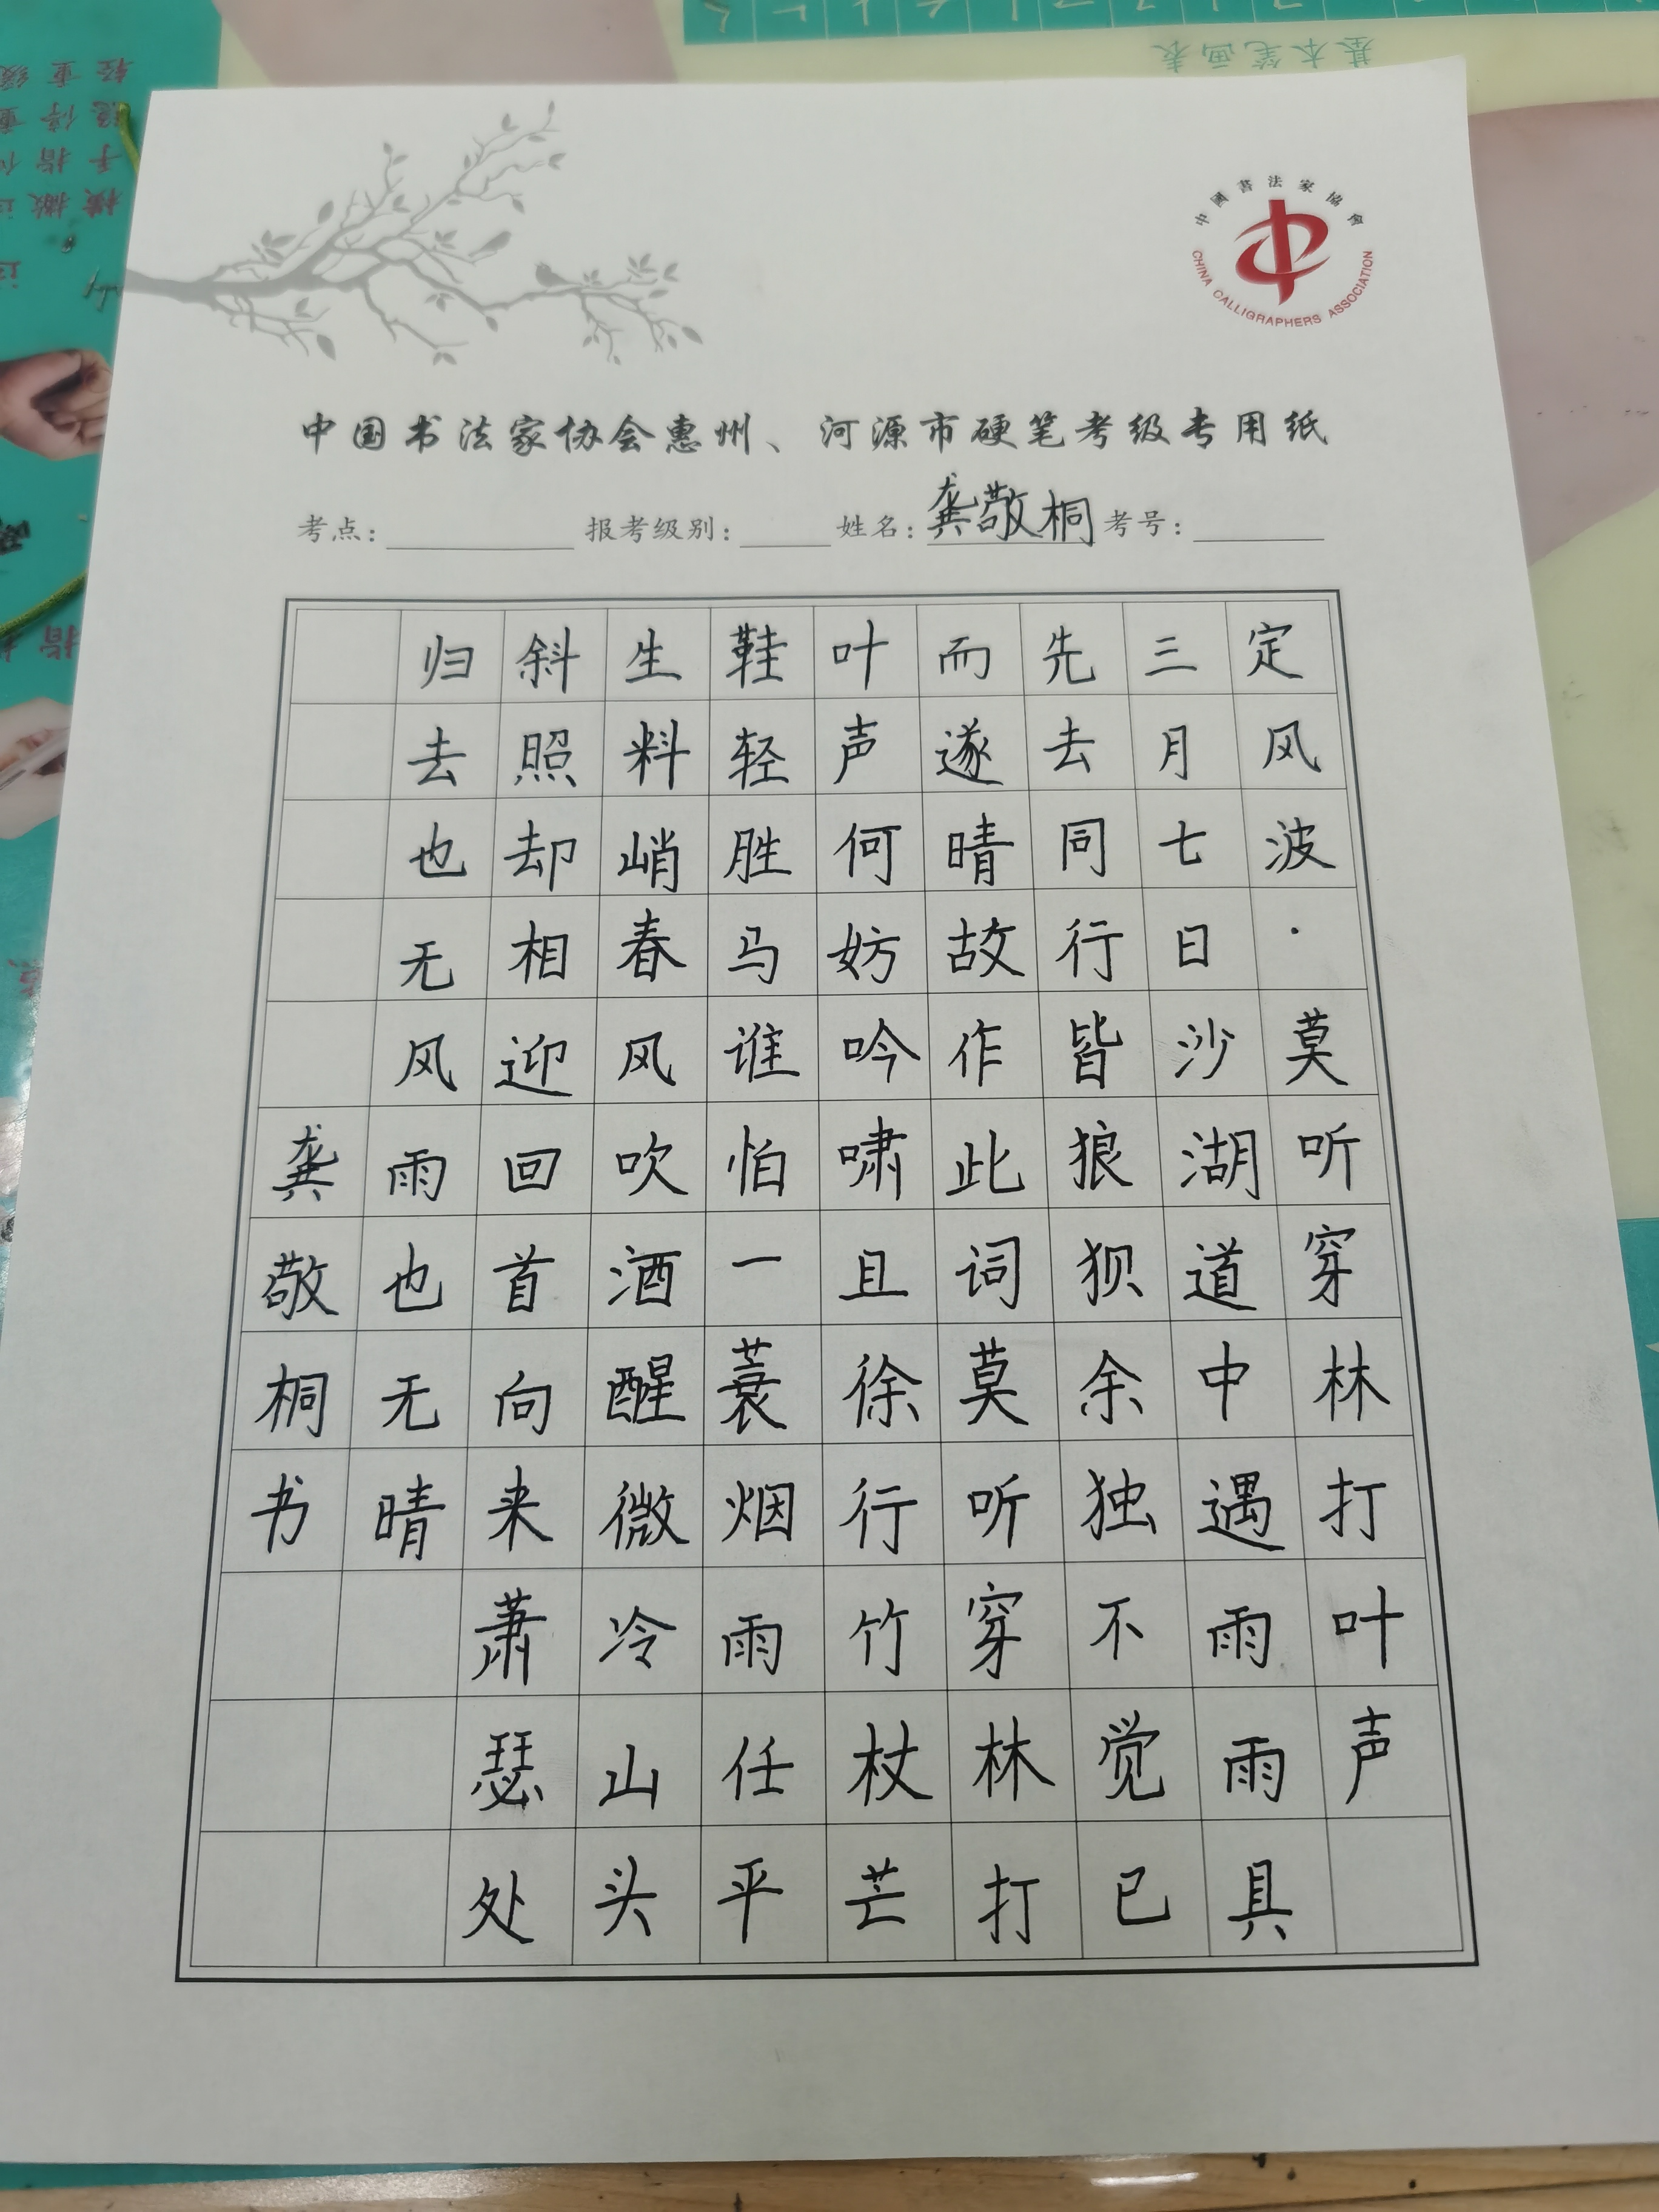 基本笔画表
中國書法家協會
CHINA CALLIGRAPHERS ASSOCIATION
中国书法家协会惠州、河源市硬笔考级专用纸
考点: 报考级别: 姓名: 龚敬桐 考号:
定风波·莫听穿林打叶声
三月七日沙湖道中遇雨雨具
先去同行皆狼狈余独不觉已
而遂晴故作此词莫听穿林打
叶声何妨吟啸且徐行竹杖芒
鞋轻胜马谁怕一蓑烟雨任平
生料峭春风吹酒醒微冷山头
斜照却相迎回首向来萧瑟处
归去也无风雨也无晴
龚敬桐书